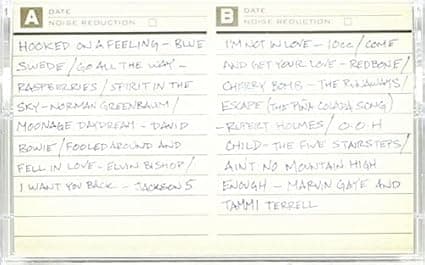 A DATE
NOISE REDUCTION
HOOKED ON A FEELING – BLUE
SWEDE / GO ALL THE WAY –
RASPBERRIES / SPIRIT IN THE
SKY – NORMAN GREENBAUM /
MOONAGE DAYDREAM – DAVID
BOWIE / FOOLED AROUND AND
FELL IN LOVE – ELVIN BISHOP /
I WANT YOU BACK – JACKSON 5
B DATE
NOISE REDUCTION
I'M NOT IN LOVE – 10CC / COME
AND GET YOUR LOVE – REDBONE /
CHERRY BOMB – THE RUNAWAYS /
ESCAPE (THE PIÑA COLADA SONG)
– RUPERT HOLMES / O-O-H
CHILD – THE FIVE STAIRSTEPS /
AIN'T NO MOUNTAIN HIGH
ENOUGH – MARVIN GAYE AND
TAMMI TERRELL